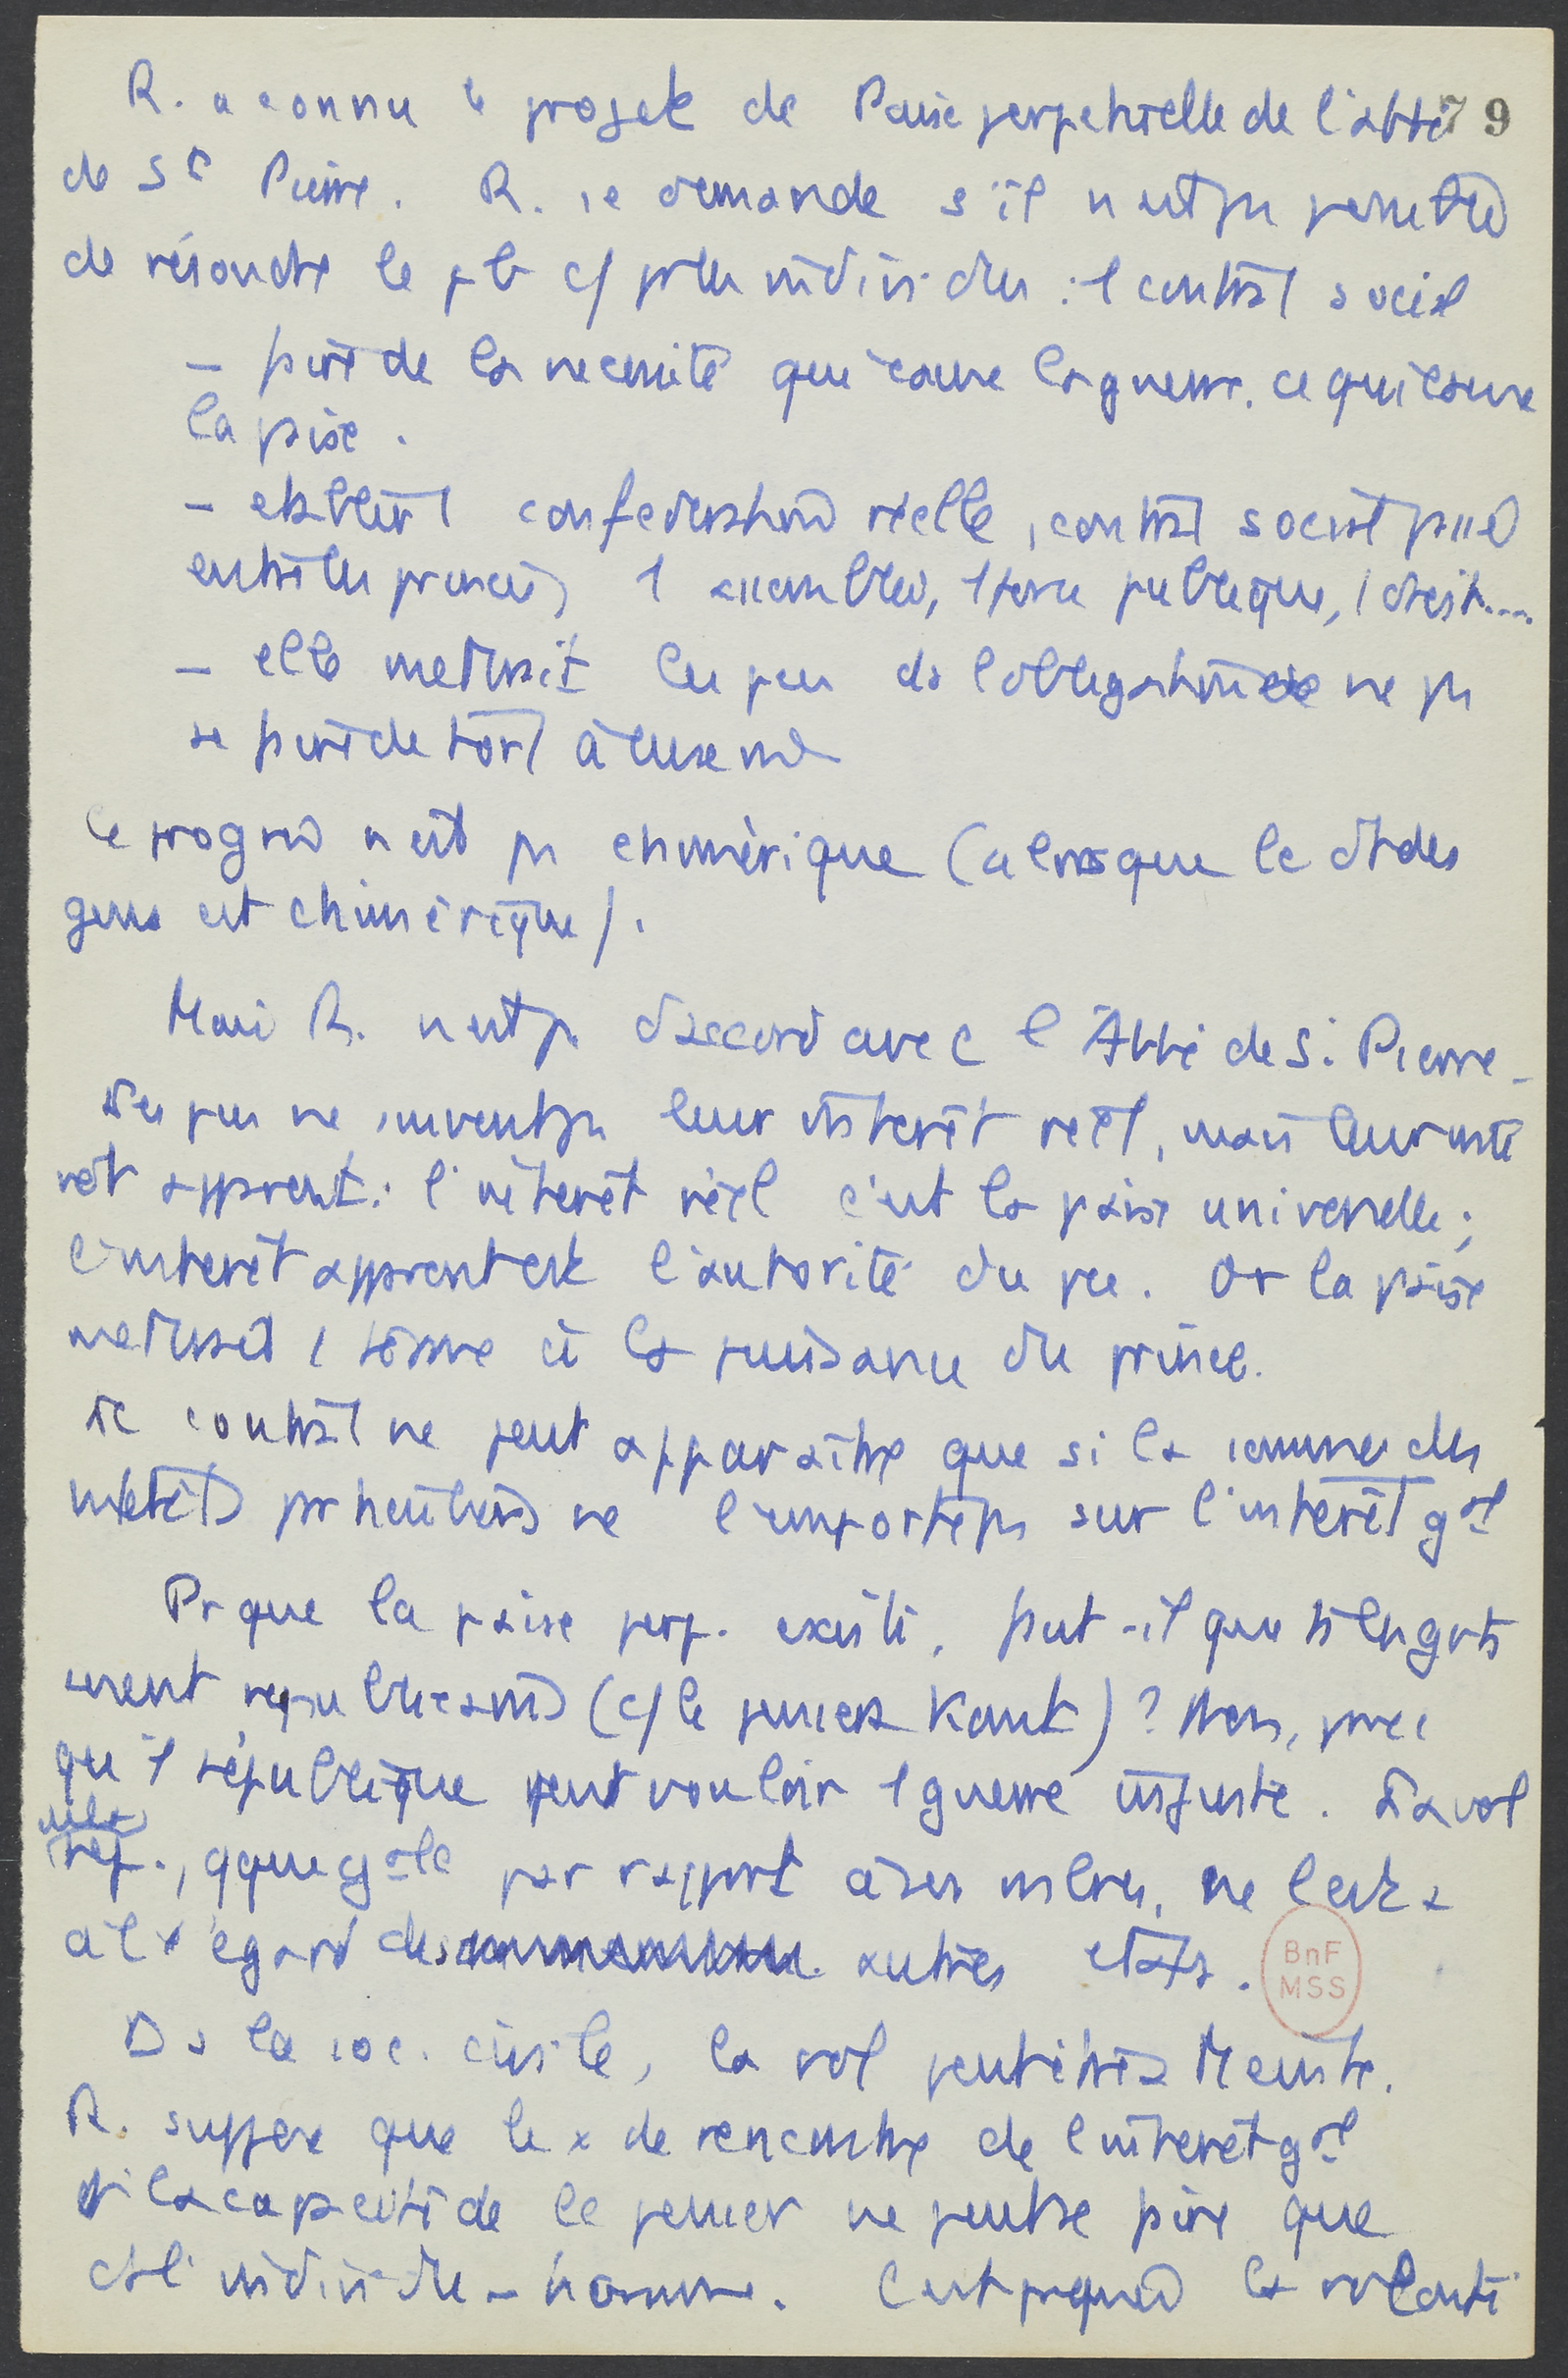 R. a connu le projet de Paix perpetuelle de l'abbé 79
de St Pierre. R. se demande s'il n'est pas permis
de résoudre le pb c/ pr les individus : 1 contrat social
– partir de la necessité que cause la guerre, ce qui cause
la paix.
– etablir 1 confederation réelle, 1 contrat social passé
entre les princes, 1 assemblée, 1 force publique, 1 droit....
– elle mettrait les ds l'obligation de ne pas
se faire de tort à eux mê
Ce n'est pas chimérique (alors que le dt des
gens est chimérique).
Mais R. n'est pas d'accord avec l'Abbé de St Pierre –
Les ne suivent pas leur intérêt réel, mais leur inté
rêt apparent : l'intérêt réel c'est la paix universelle ;
l'intérêt apparent est l'autorité du . Or la paix
mettrait 1 terme à la puissance du prince.
Le contrat ne peut apparaitre que si la somme des
intérêts particuliers ne l'emporte pas sur l'intérêt gal
Pr que la paix perp. existe, faut-il que ts les gvts
soient republicains (c/ le pensera Kant) ? Non, parce
qu'1 république peut vouloir 1 guerre injuste. La vol
rep., qque gale par rapport à ses mbres, ne l'est
à l'égard des autres états.
Ds la soc. civile, la vol peut être
R. suggère que le x de rencontre de l'intérêt gal
et la capacité de le penser ne peut se faire que
ds l'individu – homme. C'est pquoi la volonté